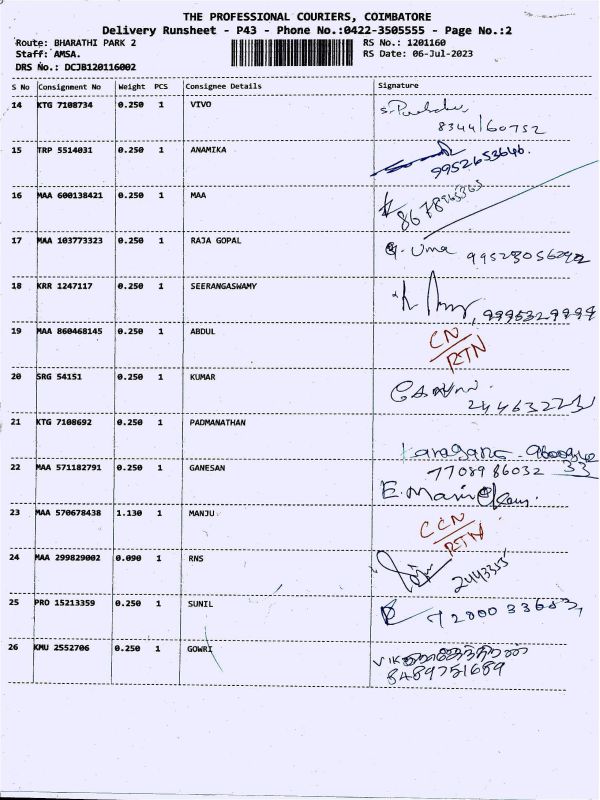 THE PROFESSIONAL COURIERS, COIMBATORE
Delivery Runsheet - P43 - Phone No.:0422-3505555 - Page No.:2
Route: BHARATHI PARK 2 RS No.: 1201160
Staff: AMSA. RS Date: 06-Jul-2023
DRS No.: DCJB120116002
S No Consignment No Weight PCS Consignee Details Signature
14 KTG 7108734 0.250 1 VIVO
8344160752
15 TRP 5514031 0.250 1 ANAMIKA
9952653646.
16 MAA 600138421 0.250 1 MAA
17 MAA 103773323 0.250 1 RAJA GOPAL
G. Uma
18 KRR 1247117 0.250 1 SEERANGASWAMY
19 MAA 860468145 0.250 1 ABDUL
CN
RTN
20 SRG 54151 0.250 1 KUMAR
21 KTG 7108692 0.250 1 PADMANATHAN
22 MAA 571182791 0.250 1 GANESAN
7708986032
23 MAA 570678438 1.130 1 MANJU
CCN
RTN
24 MAA 299829002 0.090 1 RNS
2443355
25 PRO 15213359 0.250 1 SUNIL
26 KMU 2552706 0.250 1 GOWRI
8489751689